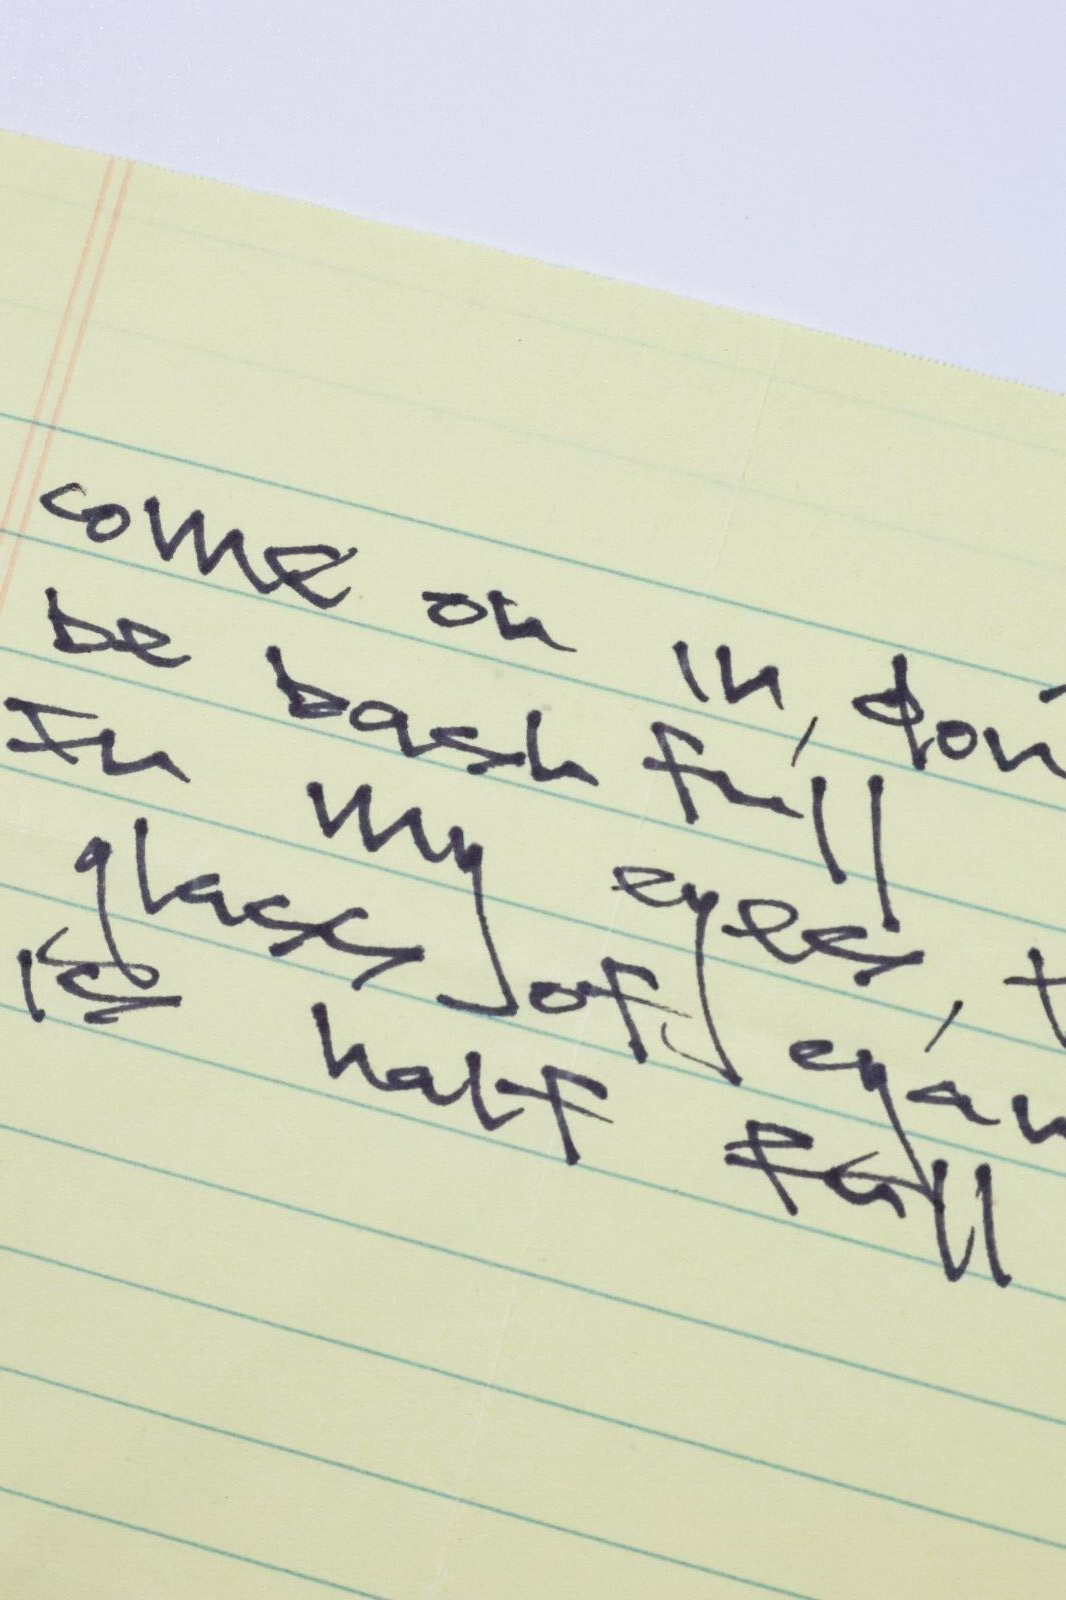 come on in, don'
be bash full
In my eyes, t
glass of cyan
is half full